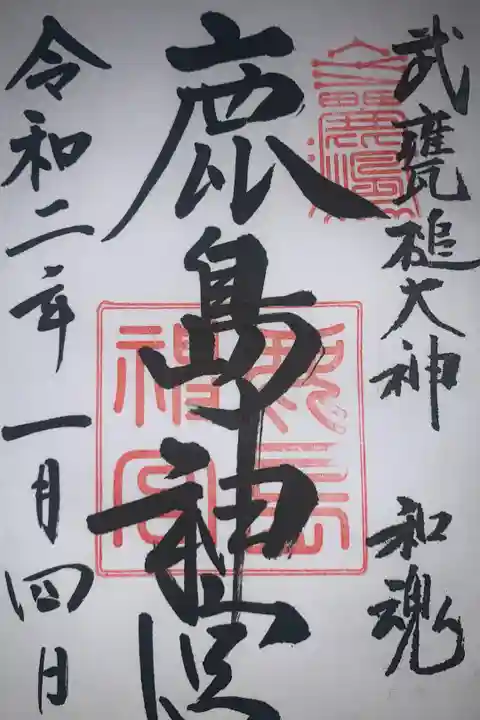 武甕槌大神 和魂
鹿島神宮
令和二年一月四日